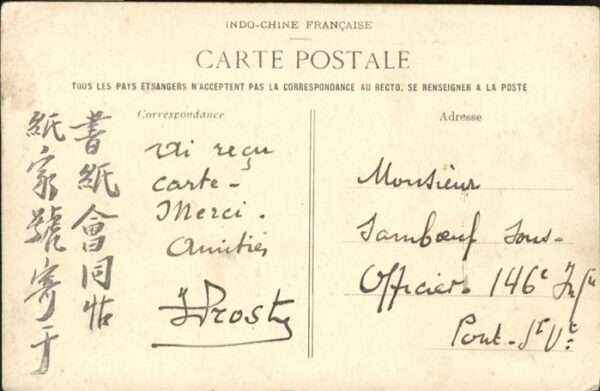 INDO-CHINE FRANÇAISE
CARTE POSTALE
TOUS LES PAYS ÉTRANGERS N'ACCEPTENT PAS LA CORRESPONDANCE AU RECTO, SE RENSEIGNER A LA POSTE
Correspondance
書紙會同帖
紙家號寄于
Ai reçu
carte-
Merci.
Amitiés
Prost
Adresse
Monsieur
Sambœuf Sous-
Officier. 146e Infie
Pont-St Vt